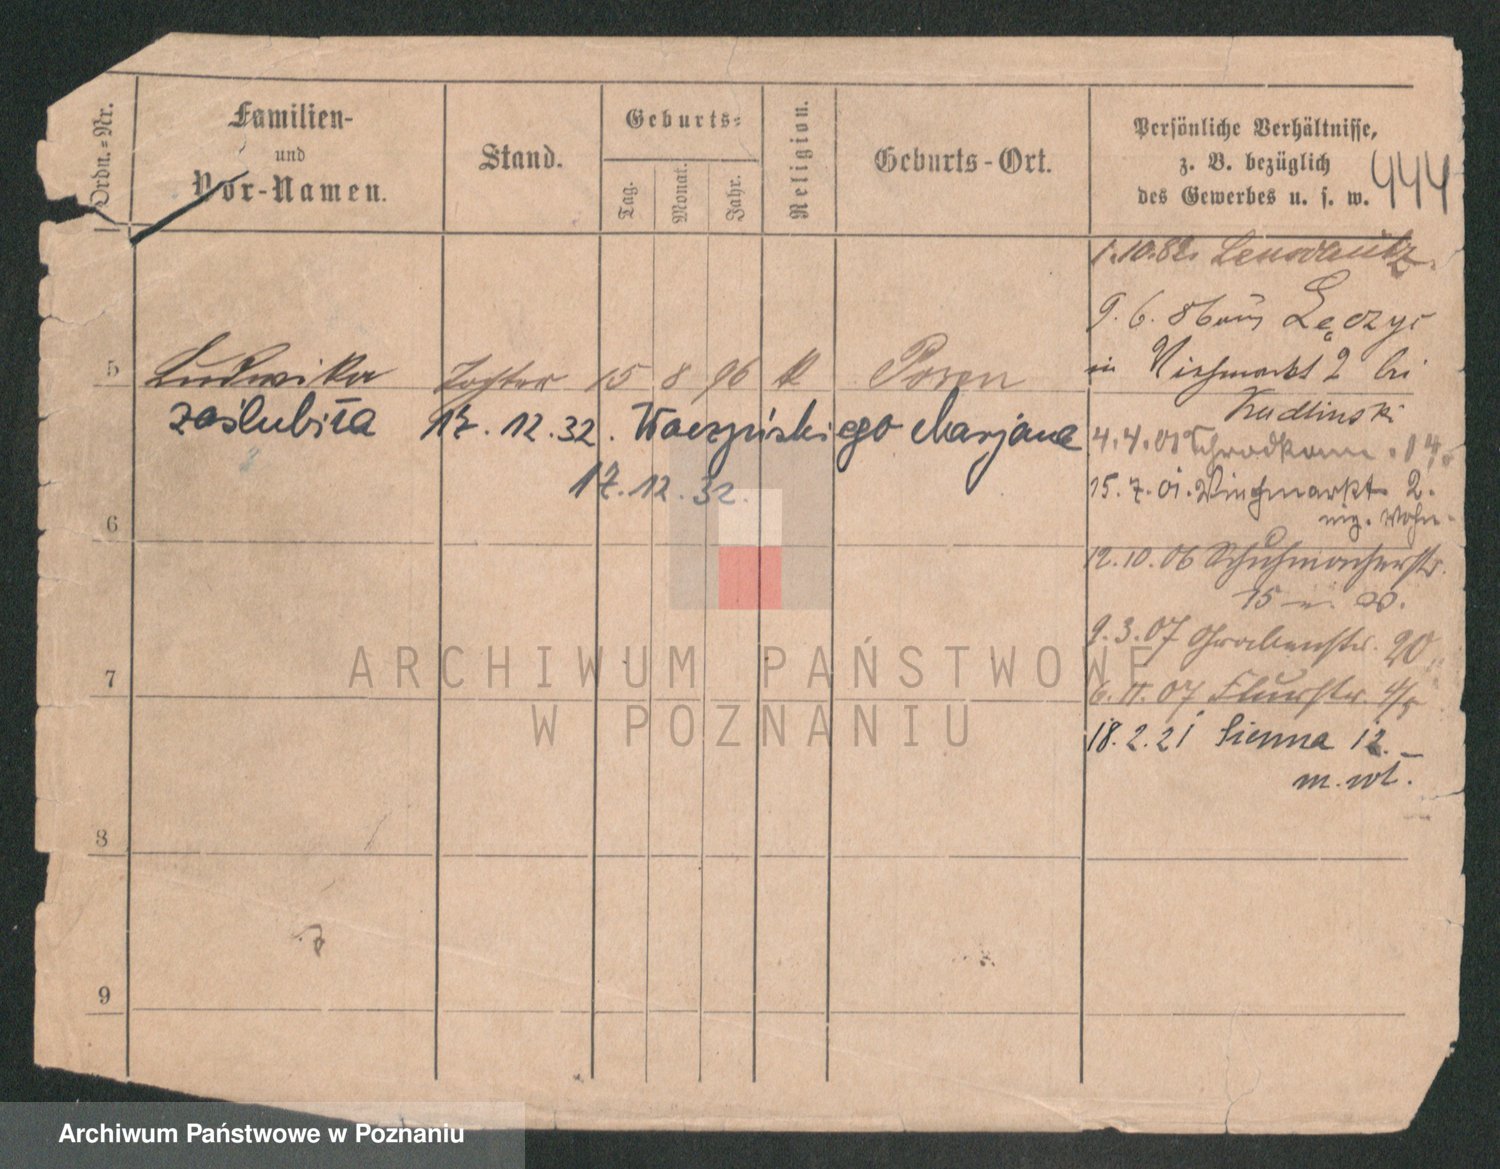 Ordn.=Nr.
Familien-
und
Vor-Namen.
Stand.
Geburts=
Tag.
Monat.
Jahr.
Religion.
Geburts-Ort.
Persönliche Verhältnisse,
z. B. bezüglich
des Gewerbes u. s. w.
444
1.10.82.
9.6.86 aus
5 Ludwika Tochter 15 8 96 k Posen
in Viehmarkt 2 bei
Kudlinski
zaślubiła 17.12.32. Marjana
17.12.32.
4.4.01 14
15.7.01. 2.
6
12.10.06 Schuhmacherstr.
15
9.3.07 Grabenstr. 20
7
6.11.07 Flurstr. 4/5
18.2.21 Sienna 12.
m. wł.
8
9
ARCHIWUM PAŃSTWOWE
W POZNANIU
Archiwum Państwowe w Poznaniu